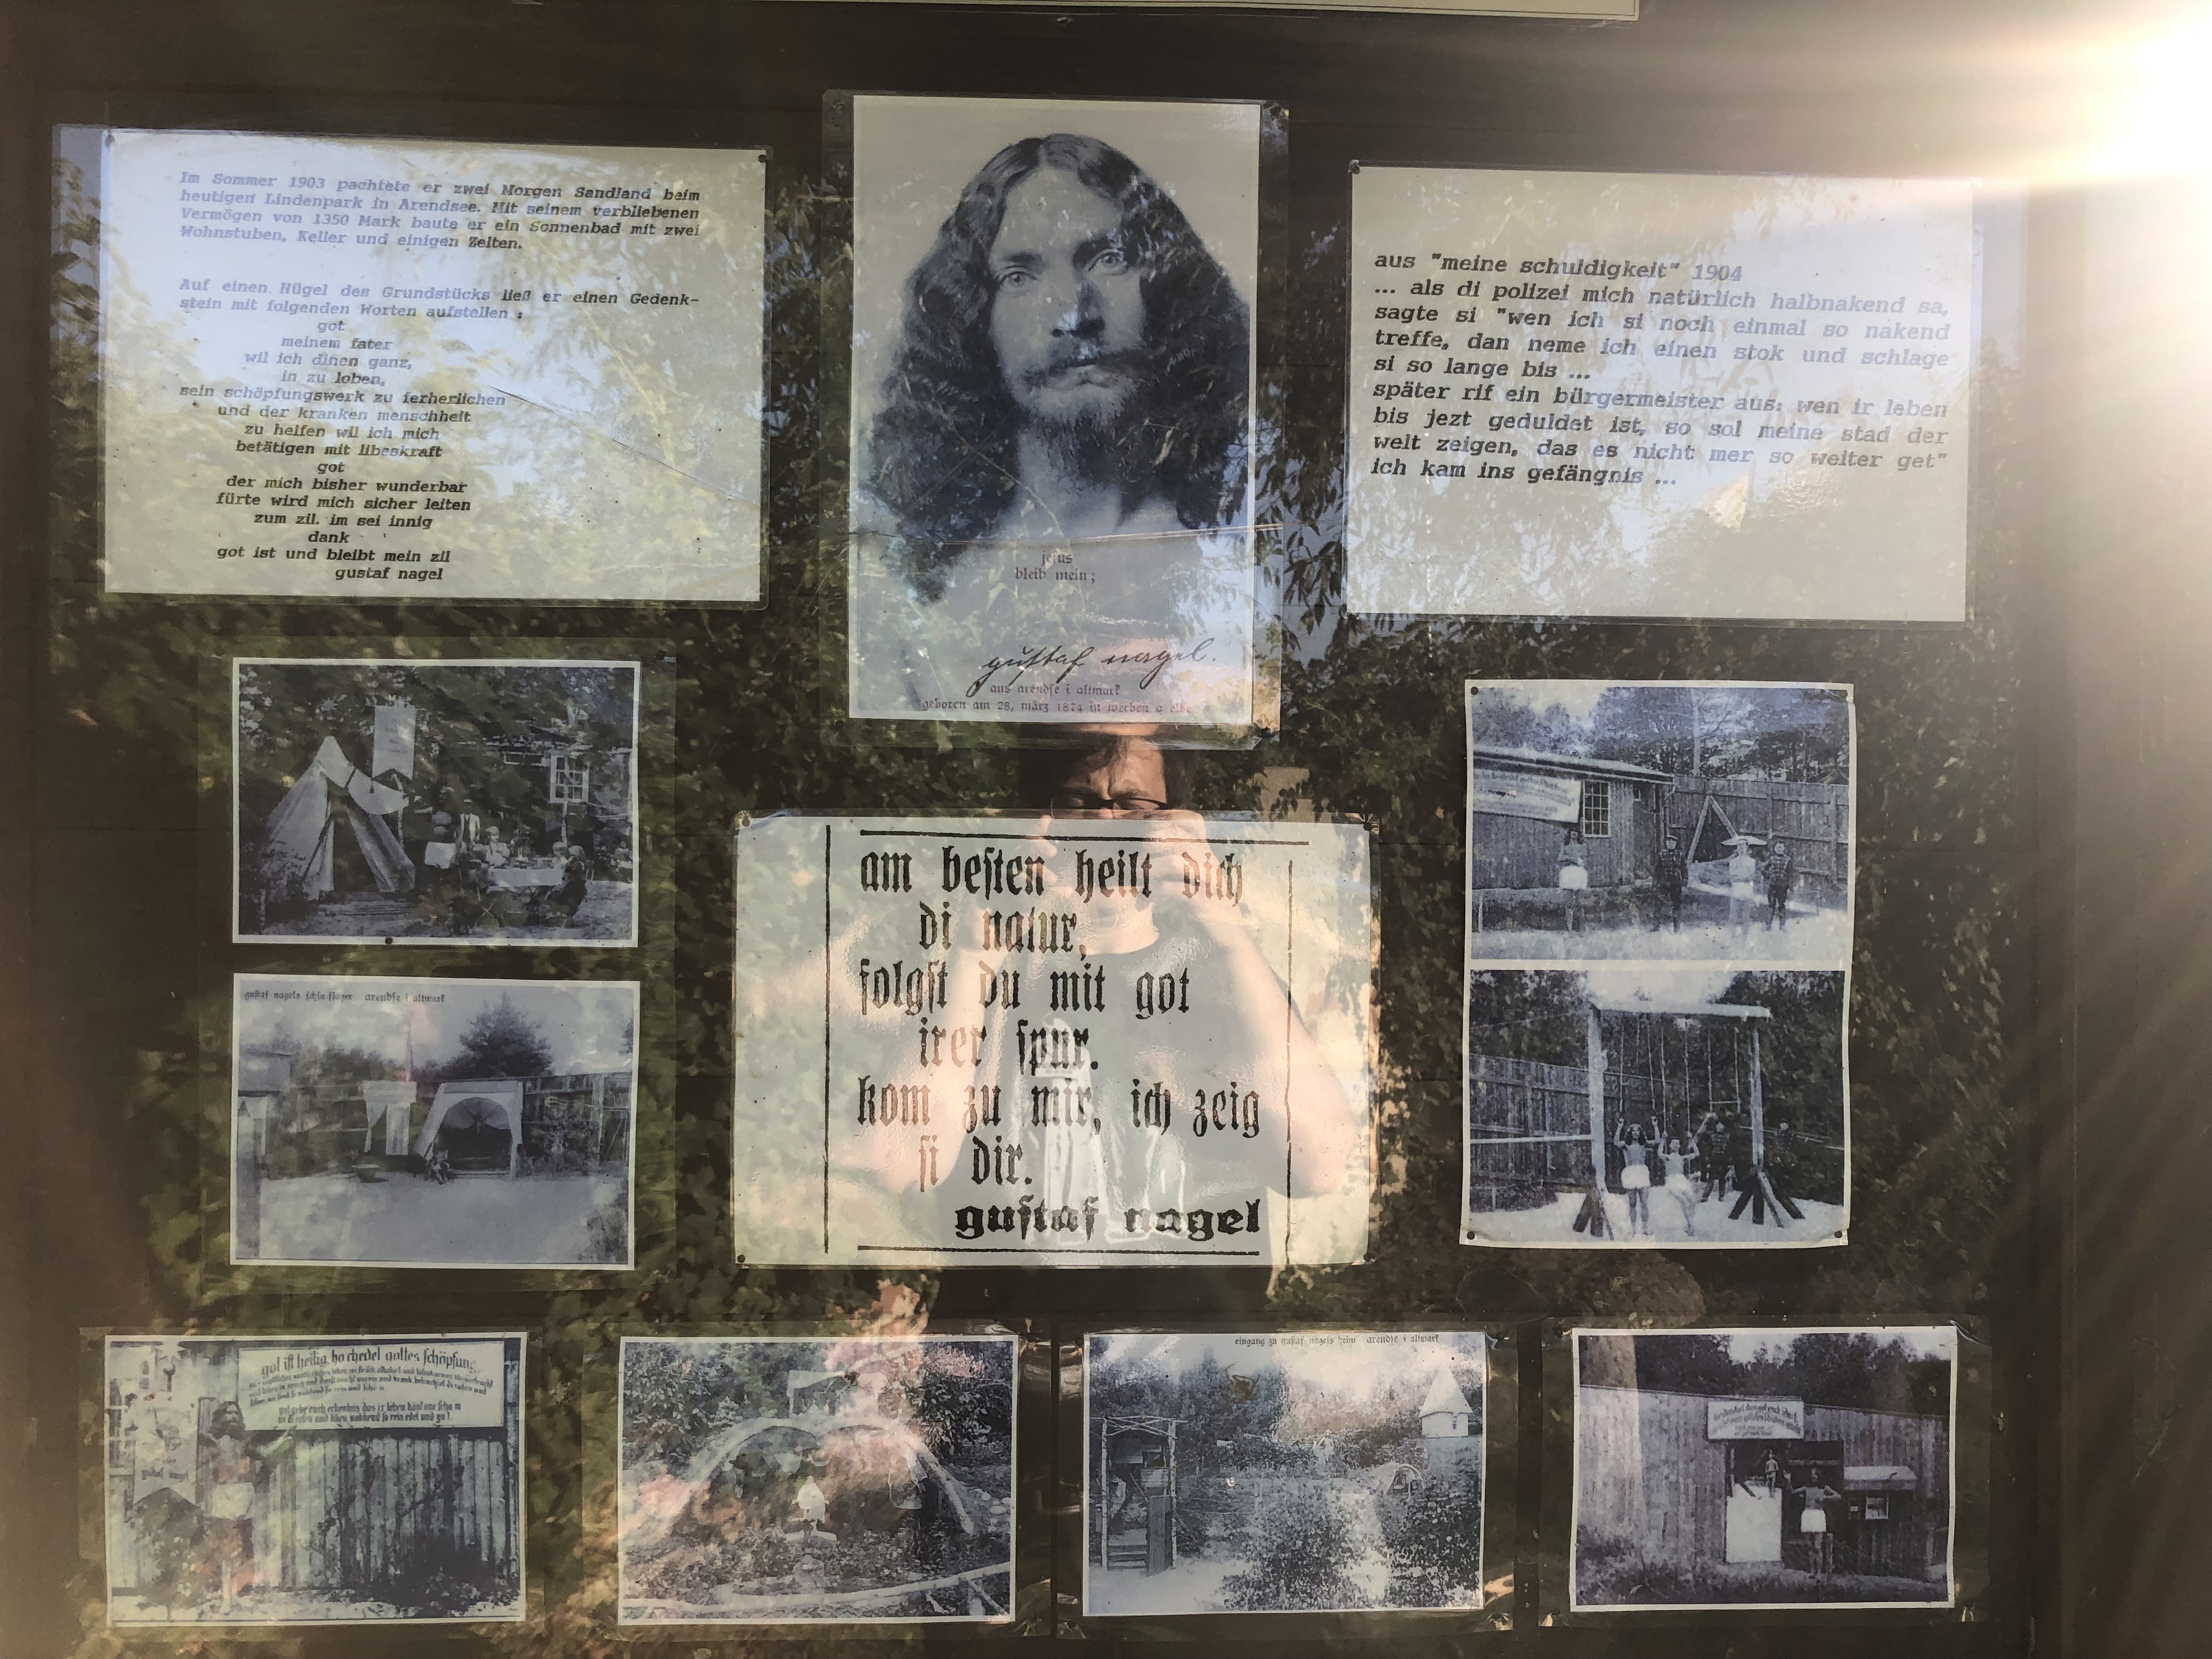 Im Sommer 1903 pachtete er zwei Morgen Sandland beim
heutigen Lindenpark in Arendsee. Mit seinem verbliebenen
Vermögen von 1350 Mark baute er ein Sonnenbad mit zwei
Wohnstuben, Keller und einigen Zelten.
Auf einen Hügel des Grundstücks ließ er einen Gedenk-
stein mit folgenden Worten aufstellen :
got
meinem fater
wil ich dinen ganz,
in zu loben,
sein schöpfungswerk zu ferherlichen
und der kranken menschheit
zu helfen wil ich mich
betätigen mit libeskraft
got
der mich bisher wunderbar
fürte wird mich sicher leiten
zum zil. im sei innig
dank
got ist und bleibt mein zil
gustaf nagel
jesus
bleib mein;
gustaf nagel.
aus arendse i altmark
geboren am 28. märz 1874 in werben a elbe
aus "meine schuldigkeit" 1904
... als di polizei mich natürlich halbnakend sa,
sagte si "wen ich si noch einmal so nakend
treffe, dan neme ich einen stok und schlage
si so lange bis ...
später rif ein bürgermeister aus: wen ir leben
bis jezt geduldet ist, so sol meine stad der
welt zeigen, das es nicht mer so weiter get"
ich kam ins gefängnis ...
am besten heilt dich
di natur,
folgst du mit got
irer spur.
kom zu mir, ich zeig
si dir.
gustaf nagel
gustaf nagels arendse i altmark
got ist heilig, hochedel gottes schöpfung
gustaf nagel
eingang zu gustaf nagels heim arendse i altmark